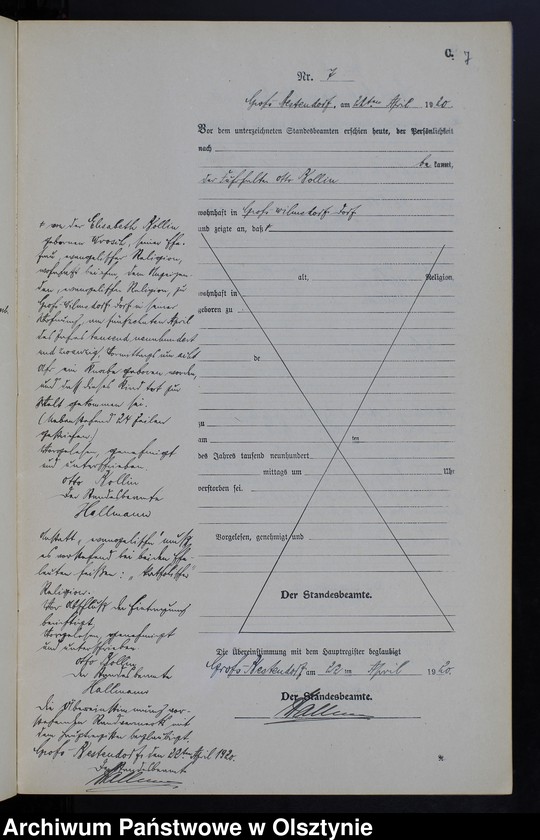 C. 7
Nr. 7
Groß Kestendorf, am 22ten April 1920.
Vor dem unterzeichneten Standesbeamten erschien heute, der Persönlichkeit
nach
be kannt,
der Otto Kollin
wohnhaft in Groß Wilmsdorf Dorf
und zeigte an, daß
alt, Religion,
wohnhaft in
geboren zu
de
zu
am ten
des Jahres tausend neunhundert
mittags um Uhr
verstorben sei.
Vorgelesen, genehmigt und
Der Standesbeamte.
Die Übereinstimmung mit dem Hauptregister beglaubigt
Groß Kestendorf am 22 ten April 1920.
Der Standesbeamte.
Hallmann
von der Elisabeth Kollin
geborenen seiner Ehe-
frau, evangelischer Religion,
wohnhaft bei ihm, dem Anzeigen-
den, evangelischer Religion, zu
Groß Wilmsdorf Dorf in seiner
Wohnung, am fünfzehnten April
des Jahres tausend neunhundert
und zwanzig, Vormittags um acht
Uhr ein Knabe geboren worden,
und daß dieses Kind tot zur
Welt gekommen sei.
(Nebenstehend 24 Zeilen
gestrichen)
Vorgelesen, genehmigt
und unterschrieben
Otto Kollin
Der Standesbeamte
Hallmann
Anstatt "evangelisch" muß
es vorstehend bei beiden Ehe-
leuten heißen: "katholischer"
Religion.
Vor Abschluß der Eintragung
berichtigt.
Vorgelesen, genehmigt
und unterschrieben
Otto Kollin
Der Standesbeamte
Hallmann
Die Übereinstimmung vor-
stehenden Randvermerk mit
dem Hauptregister beglaubigt.
Groß Kestendorf, den 22ten April 1920.
Der Standesbeamte
Hallmann
Archiwum Państwowe w Olsztynie